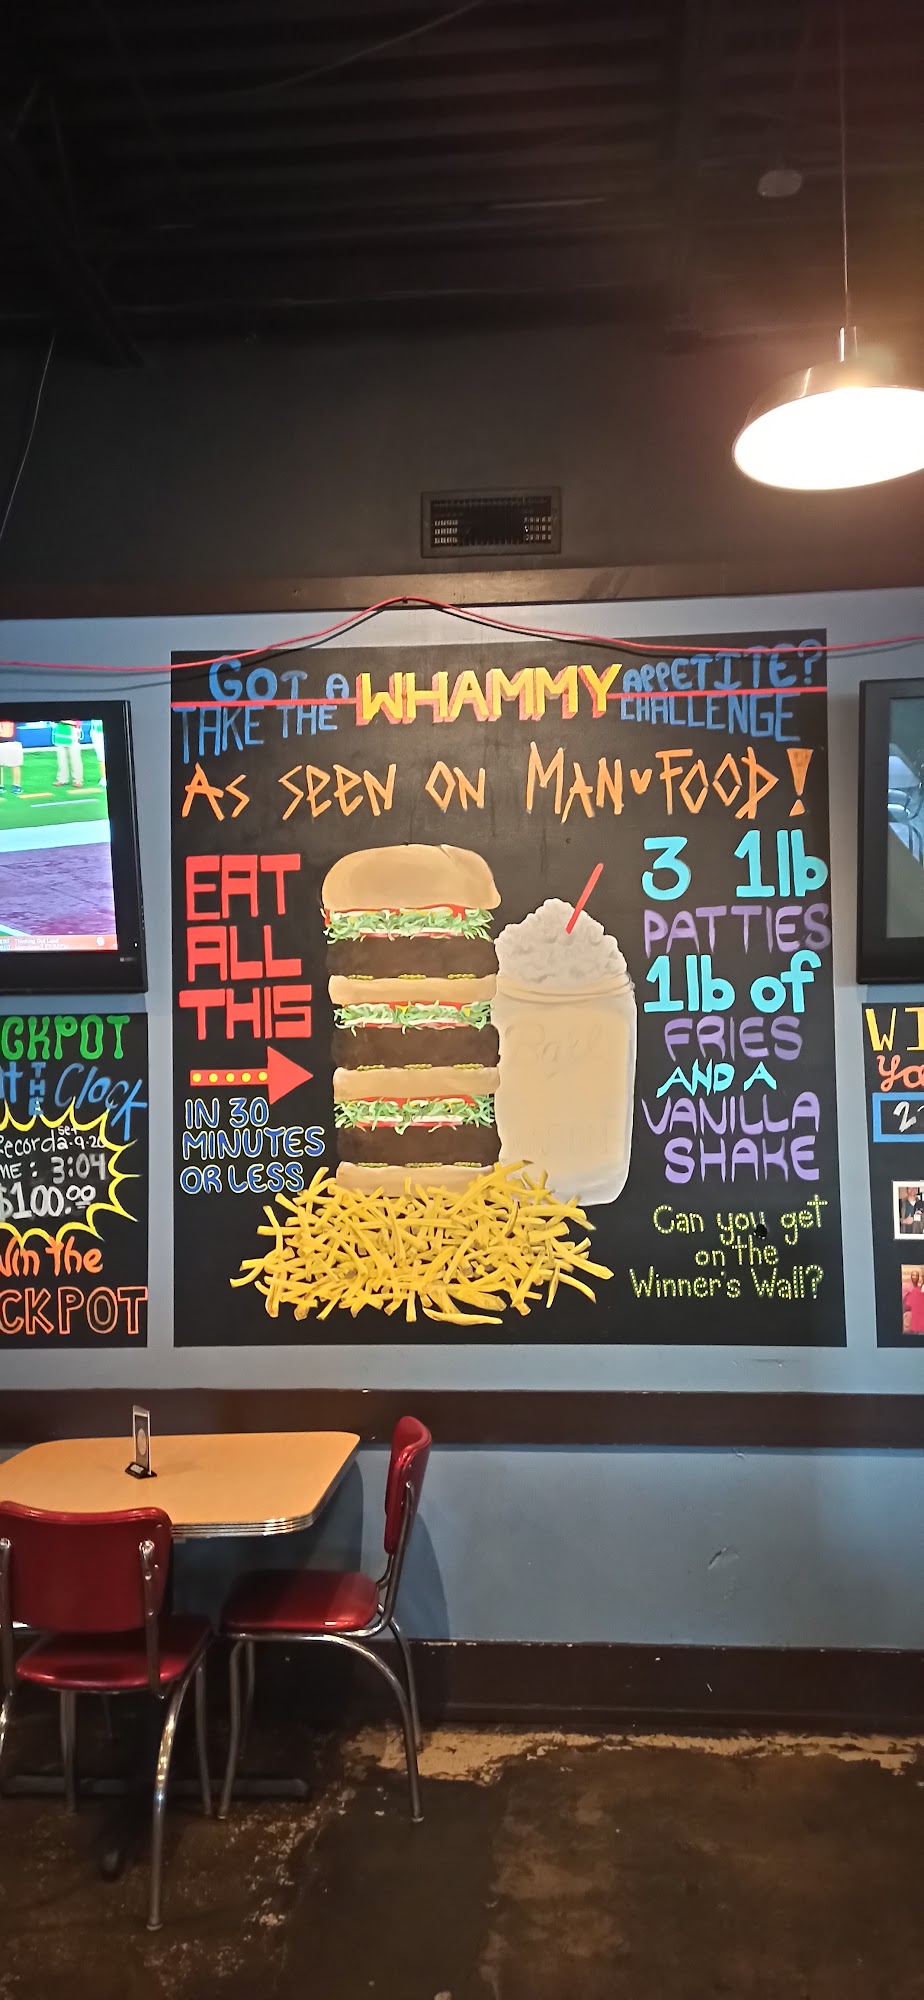 GOT A WHAMMY APPETITE?
TAKE THE CHALLENGE
AS SEEN ON MAN V FOOD!
EAT
ALL
THIS
IN 30
MINUTES
OR LESS
3 1lb
PATTIES
1lb of
FRIES
AND A
VANILLA
SHAKE
Can you get
on the
Winner's Wall?
CKPOT
THE Clock
Record set
3:04
$100.00
the
CKPOT
WI